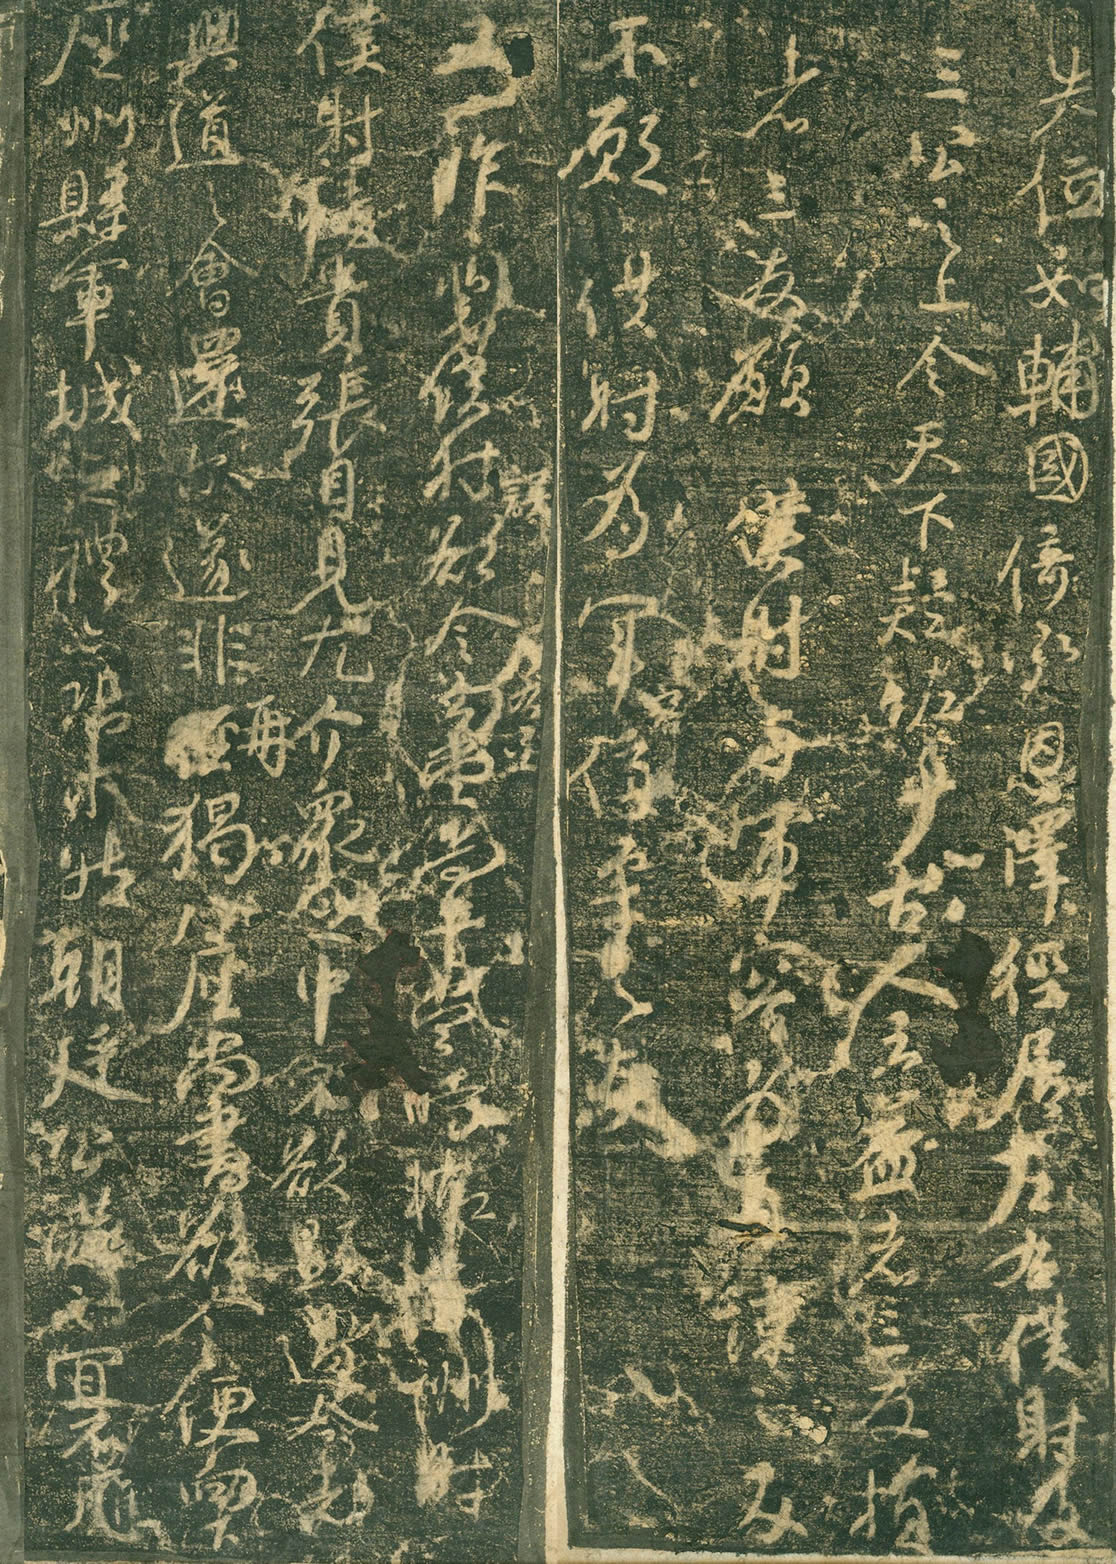 失位如輔國倚承恩澤徑居左右僕射及
三公之上令天下疑怪乎古人云益者三友損
者三友願僕射與軍容為直諒之友
不願僕射為軍容佞柔之友又
一昨裴僕射誤欲令左右丞勾當尚書當時
僕射恃貴張目見尤介眾之中不欲顯過今者
興道之會還爾遂非再猲八座尚書欲令便向下
座州縣軍城之禮亦恐未然朝廷公讌之宜不應